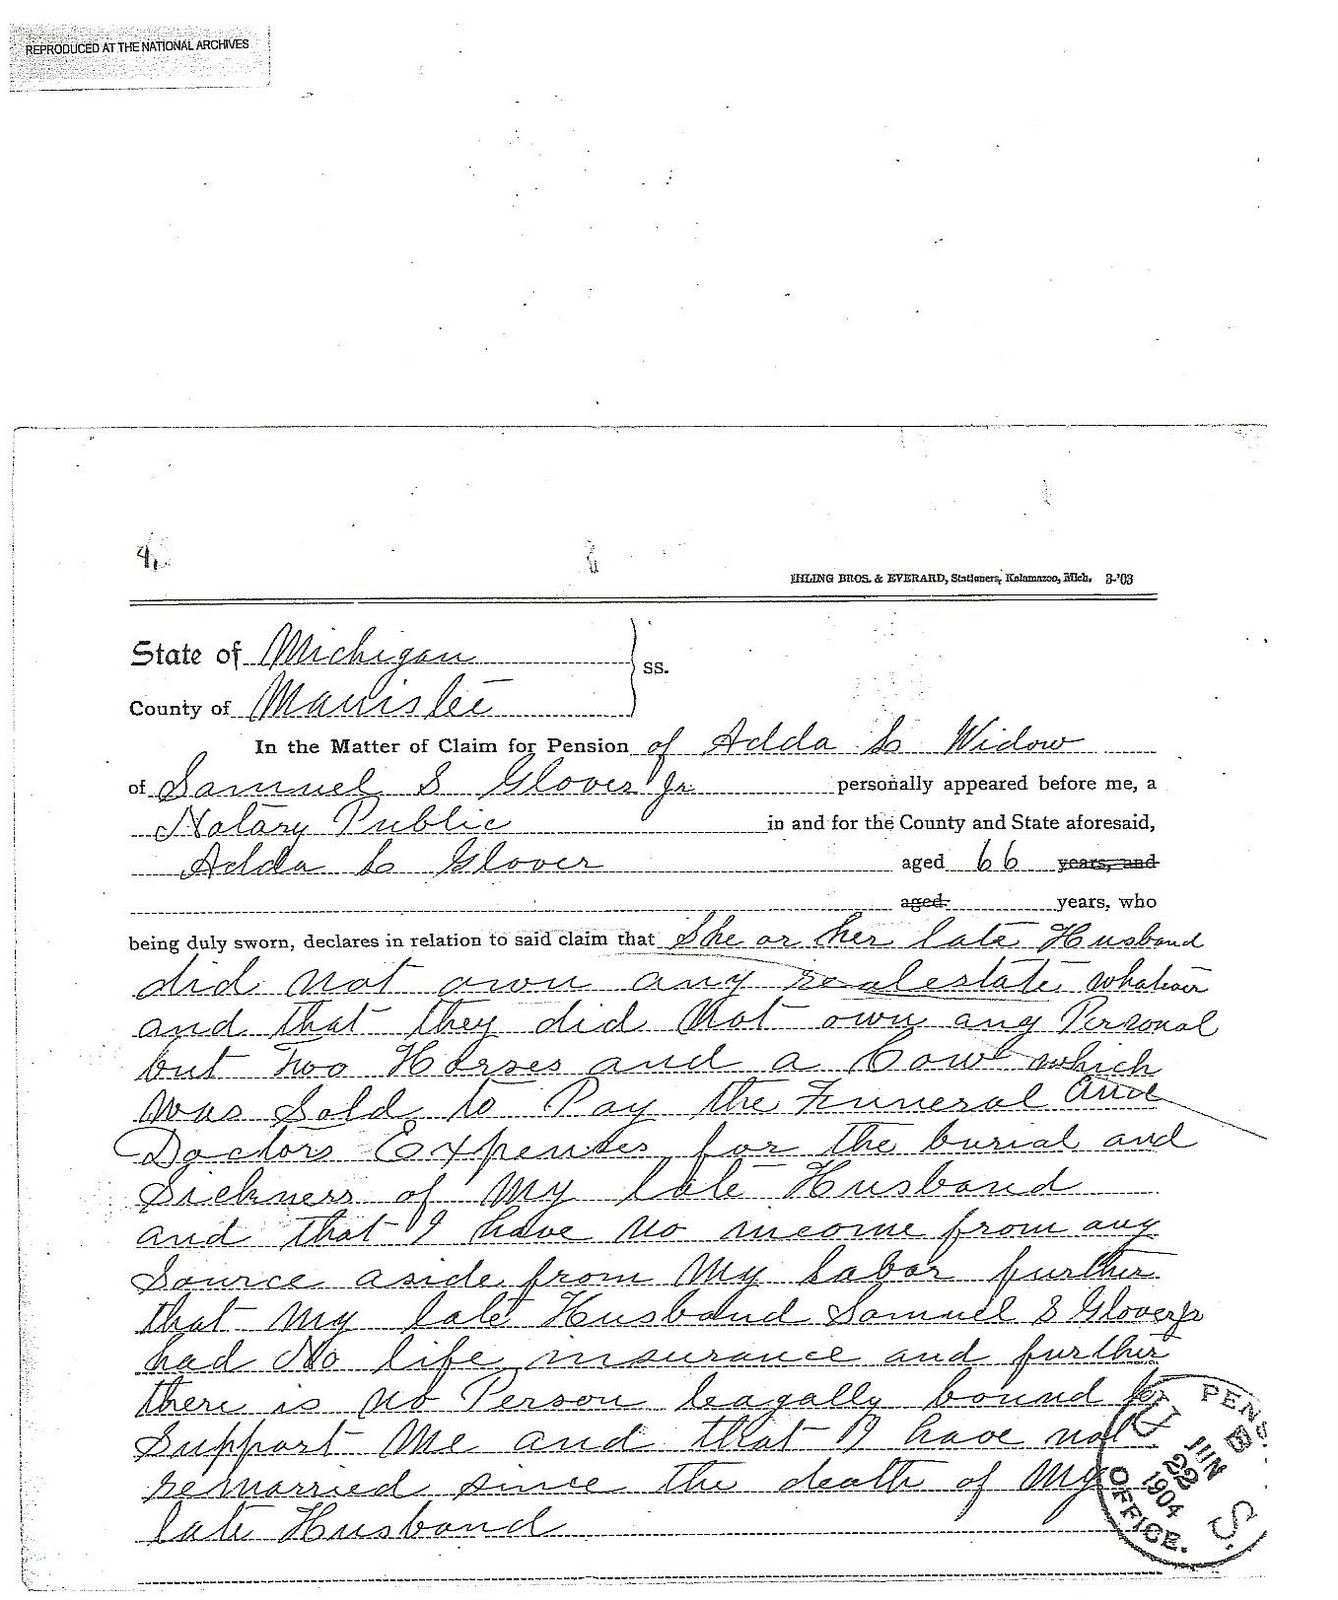 REPRODUCED AT THE NATIONAL ARCHIVES
IHLING BROS. & EVERARD, Stationers, Kalamazoo, Mich. 3-'03
State of Michigan
ss.
County of Manistee
In the Matter of Claim for Pension of Adda L Widow
of Samuel S Glover Jr personally appeared before me, a
Notary Public in and for the County and State aforesaid,
Adda L Glover aged 66 years, and
aged years, who
being duly sworn, declares in relation to said claim that She or her late Husband
did not own any real estate whatever
and that they did Not own any Personal
but Two Horses and a Cow which
was Sold to Pay the Funeral and
Doctors Expenses for the burial and
Sickness of My late Husband
and that I have no income from any
Source aside from My labor further
that My late Husband Samuel S Glover Jr
had No life insurance and further
there is no Person leagally bound to
Support Me and that I have not
remarried since the death of My
late Husband
U.S. PENS
JUN
22
1904
OFFICE.